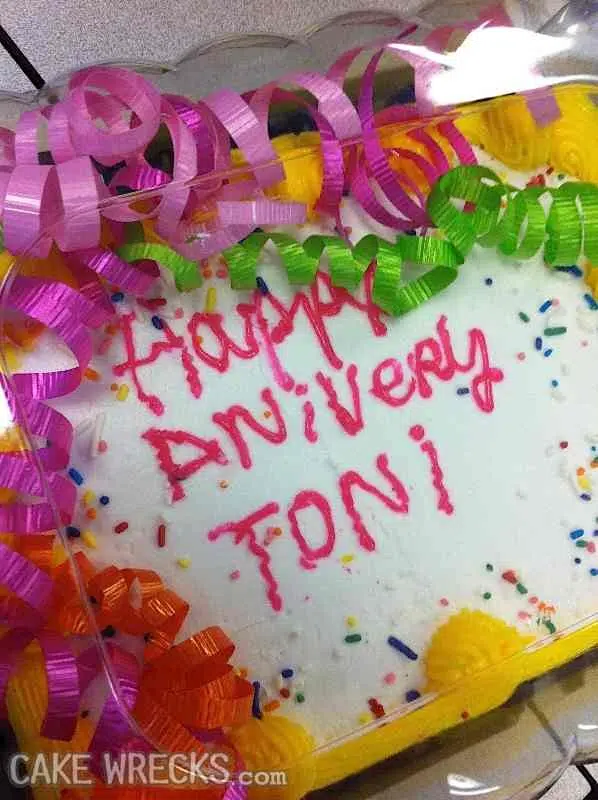 Happy
ANivery
TONi
CAKE WRECKS.com